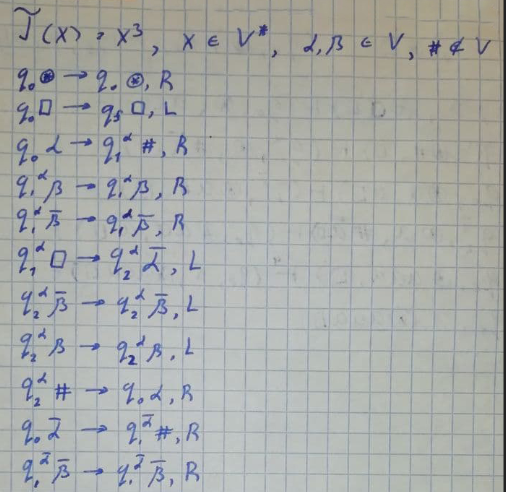 T̃(x) = x³, x ∈ V*, α, β ∈ V, # ∉ V
q₀ ⊛ → q₀ ⊛, R
q₀ □ → q₅ □, L
q₀ α → q₁^α #, R
q₁^α β → q₁^α β, R
q₁^α β̅ → q₁^α β̅, R
q₁^α □ → q₂^α α̅, L
q₂^α β̅ → q₂^α β̅, L
q₂^α β → q₂^α β, L
q₂^α # → q₀ α, R
q₀ α̅ → q₁^α̅ #, R
q₁^α̅ β̅ → q₁^α̅ β̅, R